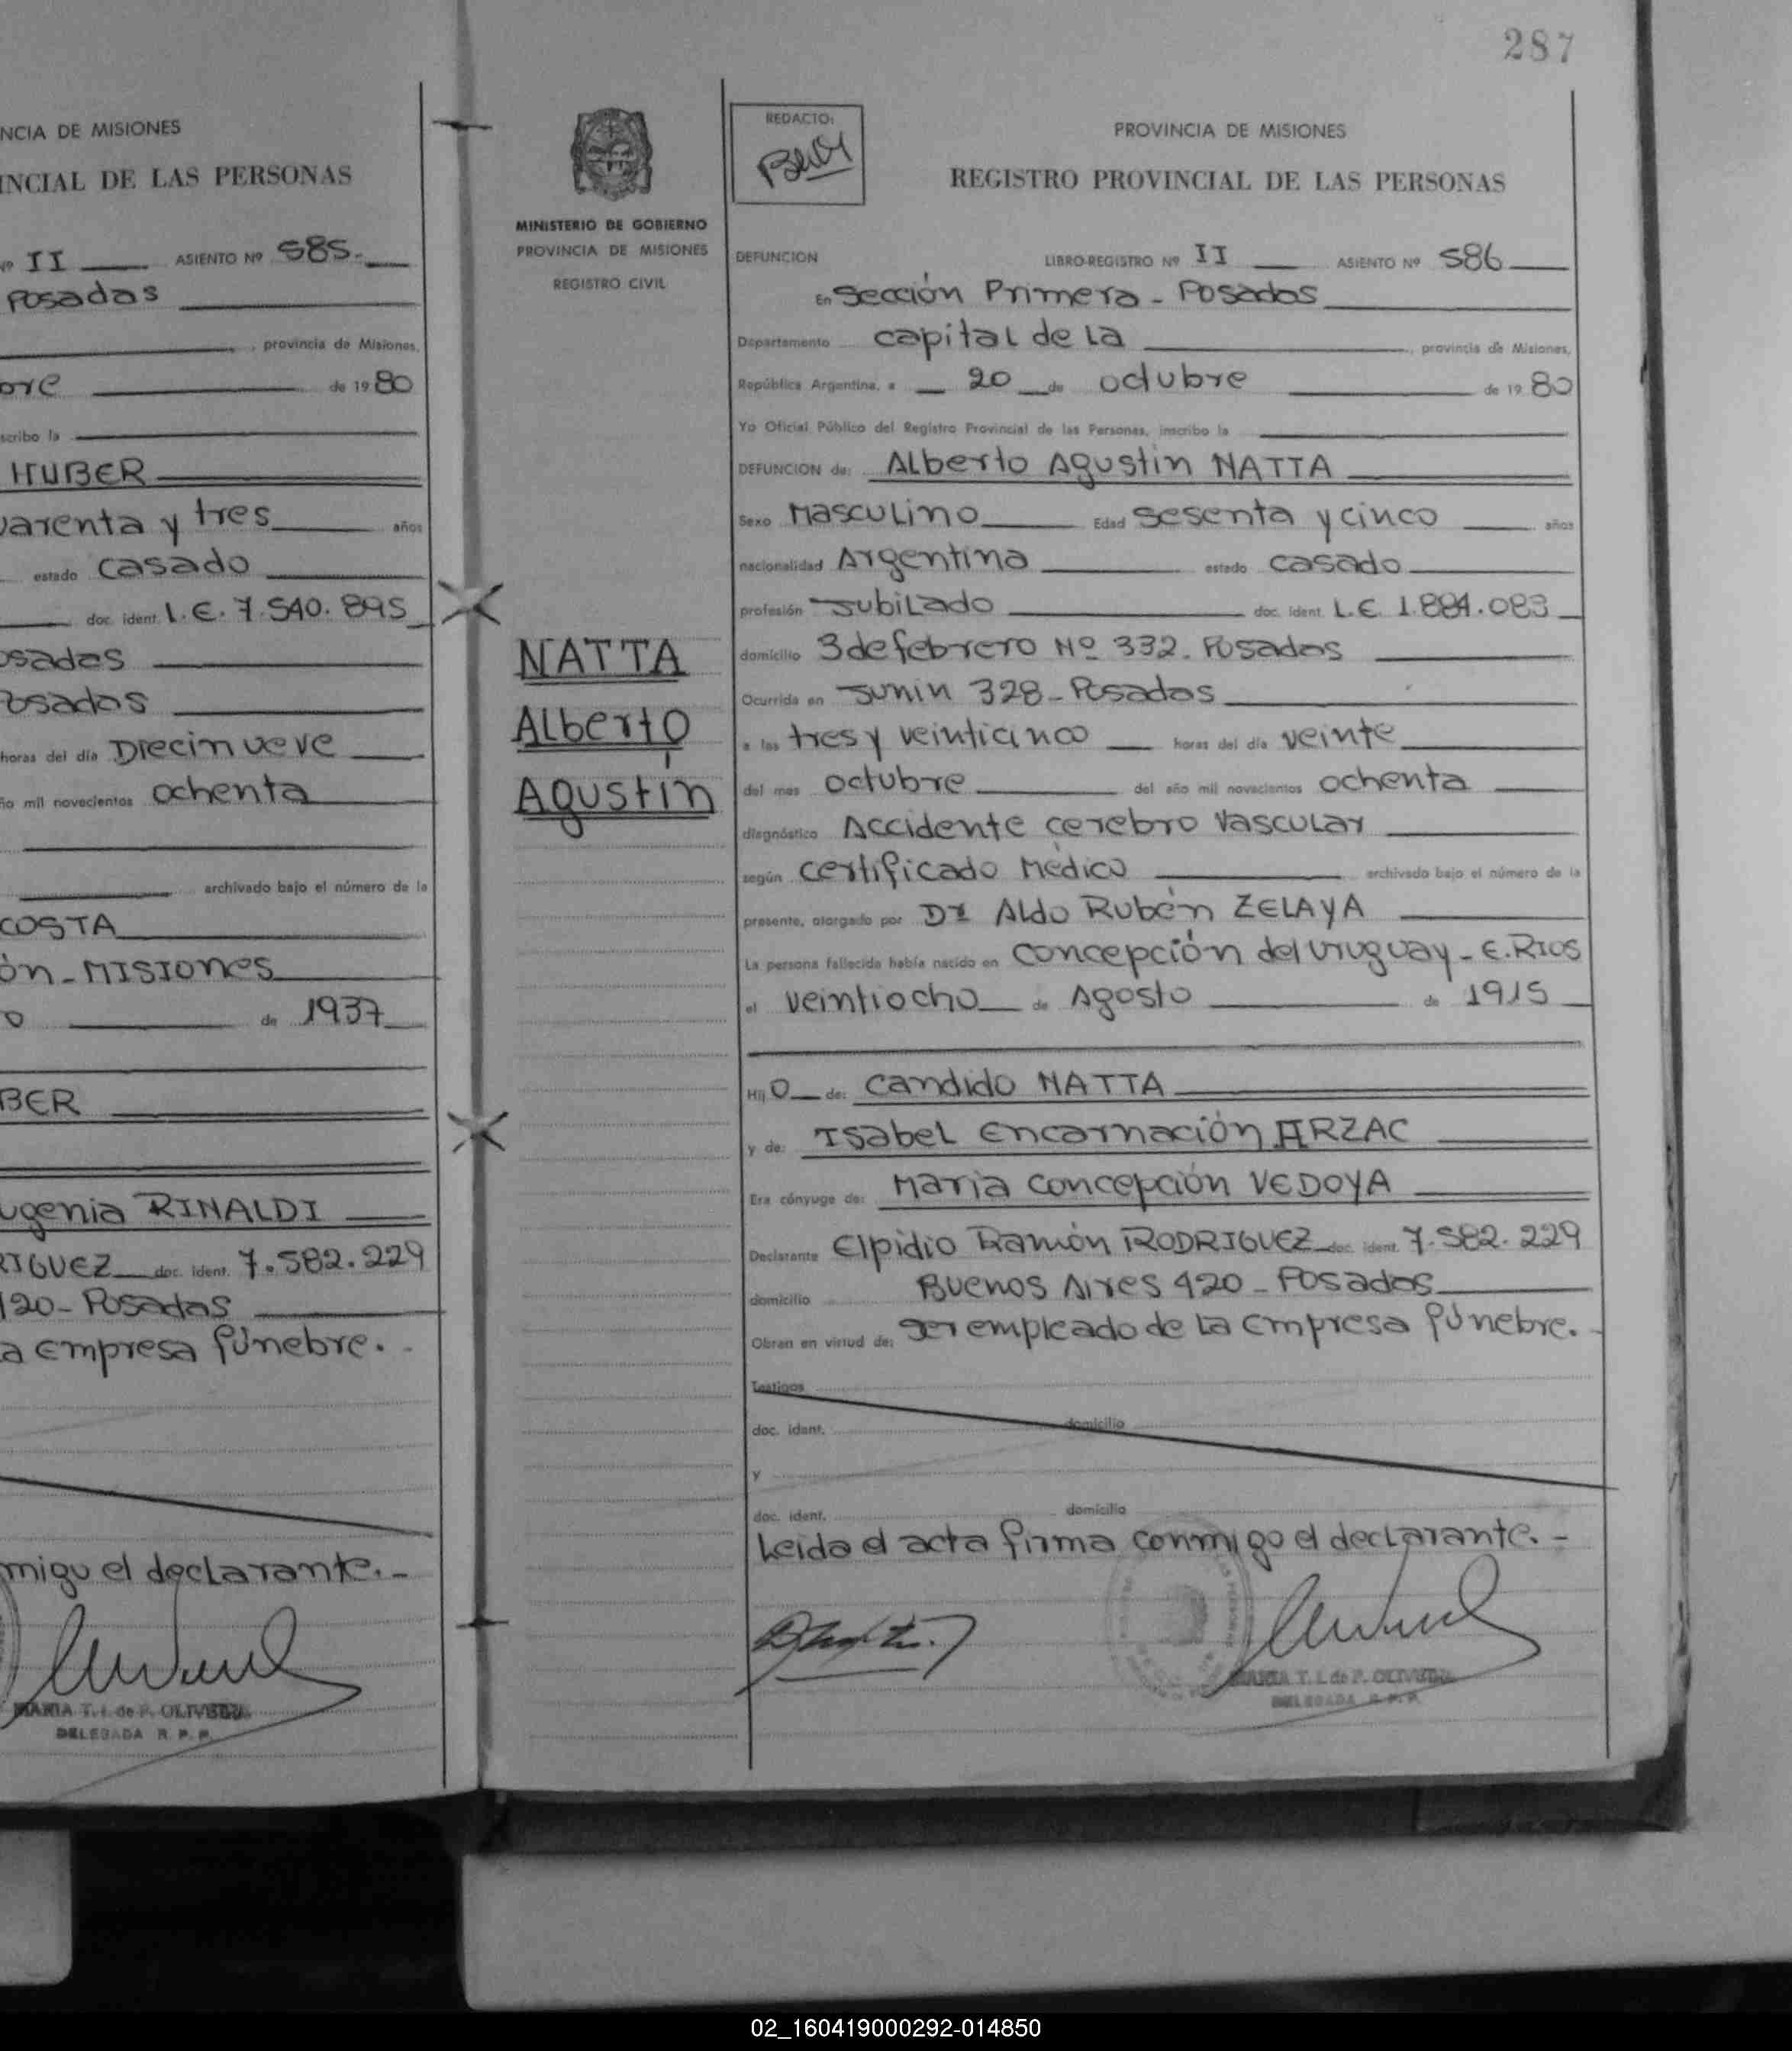 NCIA DE MISIONES
INCIAL DE LAS PERSONAS
Nº II ASIENTO Nº 585.
Posadas
, provincia de Misiones,
bre de 1980
scribo la
HUBER
uarenta y tres años
estado casado
doc. ident. L.E. 7.540.895
osadas
Posadas
horas del día Diecinueve
ño mil novecientos ochenta
archivado bajo el número de la
COSTA
ón - MISIONES
o de 1937
BER
ugenia RINALDI
RIGUEZ doc. ident. 7.582.229
120 - Posadas
a empresa fúnebre. -
migo el declarante. -
MARIA T. I. de P. OLIVEIRA
DELEGADA R. P. P.
287
MINISTERIO DE GOBIERNO
PROVINCIA DE MISIONES
REGISTRO CIVIL
NATTA
Alberto
Agustín
REDACTO:
PROVINCIA DE MISIONES
REGISTRO PROVINCIAL DE LAS PERSONAS
DEFUNCION LIBRO-REGISTRO Nº II ASIENTO Nº 586
En Sección Primera - Posadas
Departamento capital de la , provincia de Misiones,
República Argentina, a 20 de octubre de 1980
Yo Oficial Público del Registro Provincial de las Personas, inscribo la
DEFUNCION de: Alberto Agustín NATTA
Sexo Masculino Edad sesenta y cinco años
nacionalidad Argentina estado casado
profesión Jubilado doc. ident. L.E. 1.884.083
domicilio 3 de febrero Nº 332 - Posadas
Ocurrida en Junin 328 - Posadas
a las tres y veinticinco horas del día veinte
del mes octubre del año mil novecientos ochenta
diagnóstico Accidente cerebro vascular
según certificado Médico archivado bajo el número de la
presente, otorgado por Dr Aldo Rubén ZELAYA
La persona fallecida había nacido en Concepción del Uruguay - E. RIOS
el veintiocho de Agosto de 1915
Hij o de: Candido NATTA
y de: Isabel Encarnación ARZAC
Era cónyuge de: María Concepción VEDOYA
Declarante Elpidio Ramón RODRIGUEZ doc. ident. 7.582.229
domicilio Buenos Aires 420 - Posadas
Obran en virtud de: ser empleado de la empresa fúnebre. -
Testigos
doc. ident. domicilio
y
doc. ident. domicilio
Leida el acta firma conmigo el declarante. -
MARIA T. I. de P. OLIVEIRA
DELEGADA R. P. P.
02_160419000292-014850